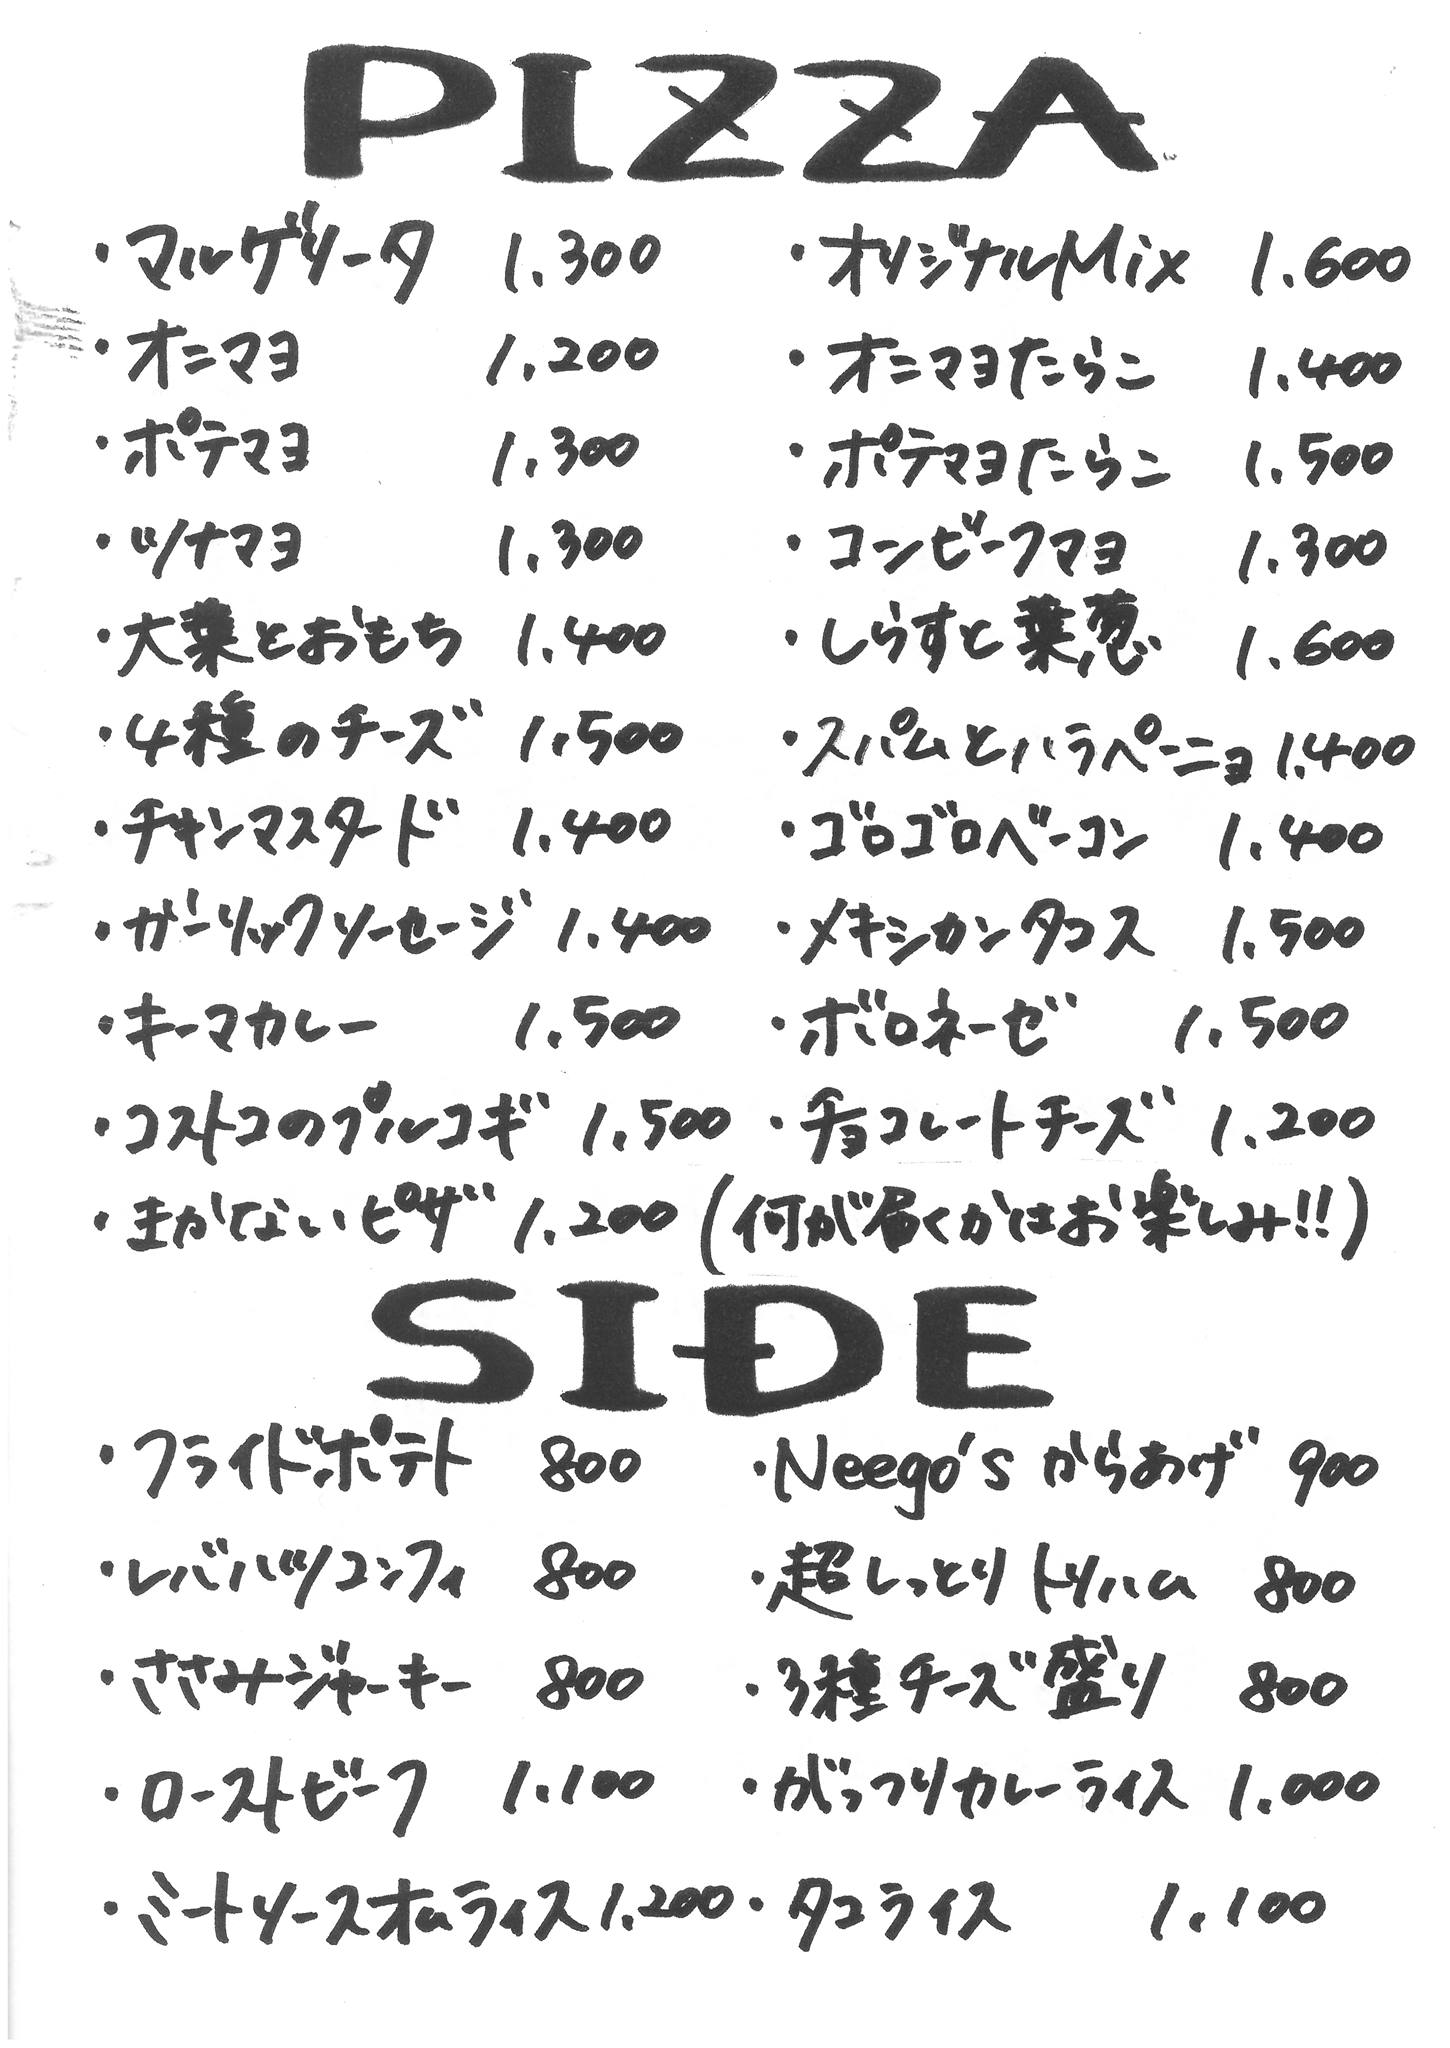 PIZZA
・マルゲリータ 1.300 ・オリジナルMix 1.600
・オニマヨ 1.200 ・オニマヨたらこ 1.400
・ポテマヨ 1.300 ・ポテマヨたらこ 1.500
・ツナマヨ 1.300 ・コンビーフマヨ 1.300
・大葉とおもち 1.400 ・しらすと葉葱 1.600
・4種のチーズ 1.500 ・スパムとハラペーニョ 1.400
・チキンマスタード 1.400 ・ゴロゴロベーコン 1.400
・ガーリックソーセージ 1.400 ・メキシカンタコス 1.500
・キーマカレー 1.500 ・ボロネーゼ 1.500
・コストコのプルコギ 1.500 ・チョコレートチーズ 1.200
・まかないピザ 1.200 (何が届くかはお楽しみ!!)
SIDE
・フライドポテト 800 ・Neego's からあげ 900
・レバハツコンフィ 800 ・超しっとりトリハム 800
・ささみジャーキー 800 ・3種チーズ盛り 800
・ローストビーフ 1.100 ・がっつりカレーライス 1.000
・ミートソースオムライス 1.200 ・タコライス 1.100